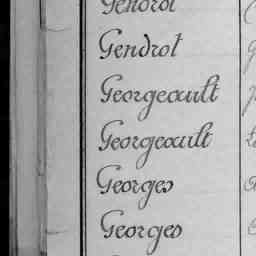 Gendrot
Gendrot
Georgeault
Georgeault
Georges
Georges